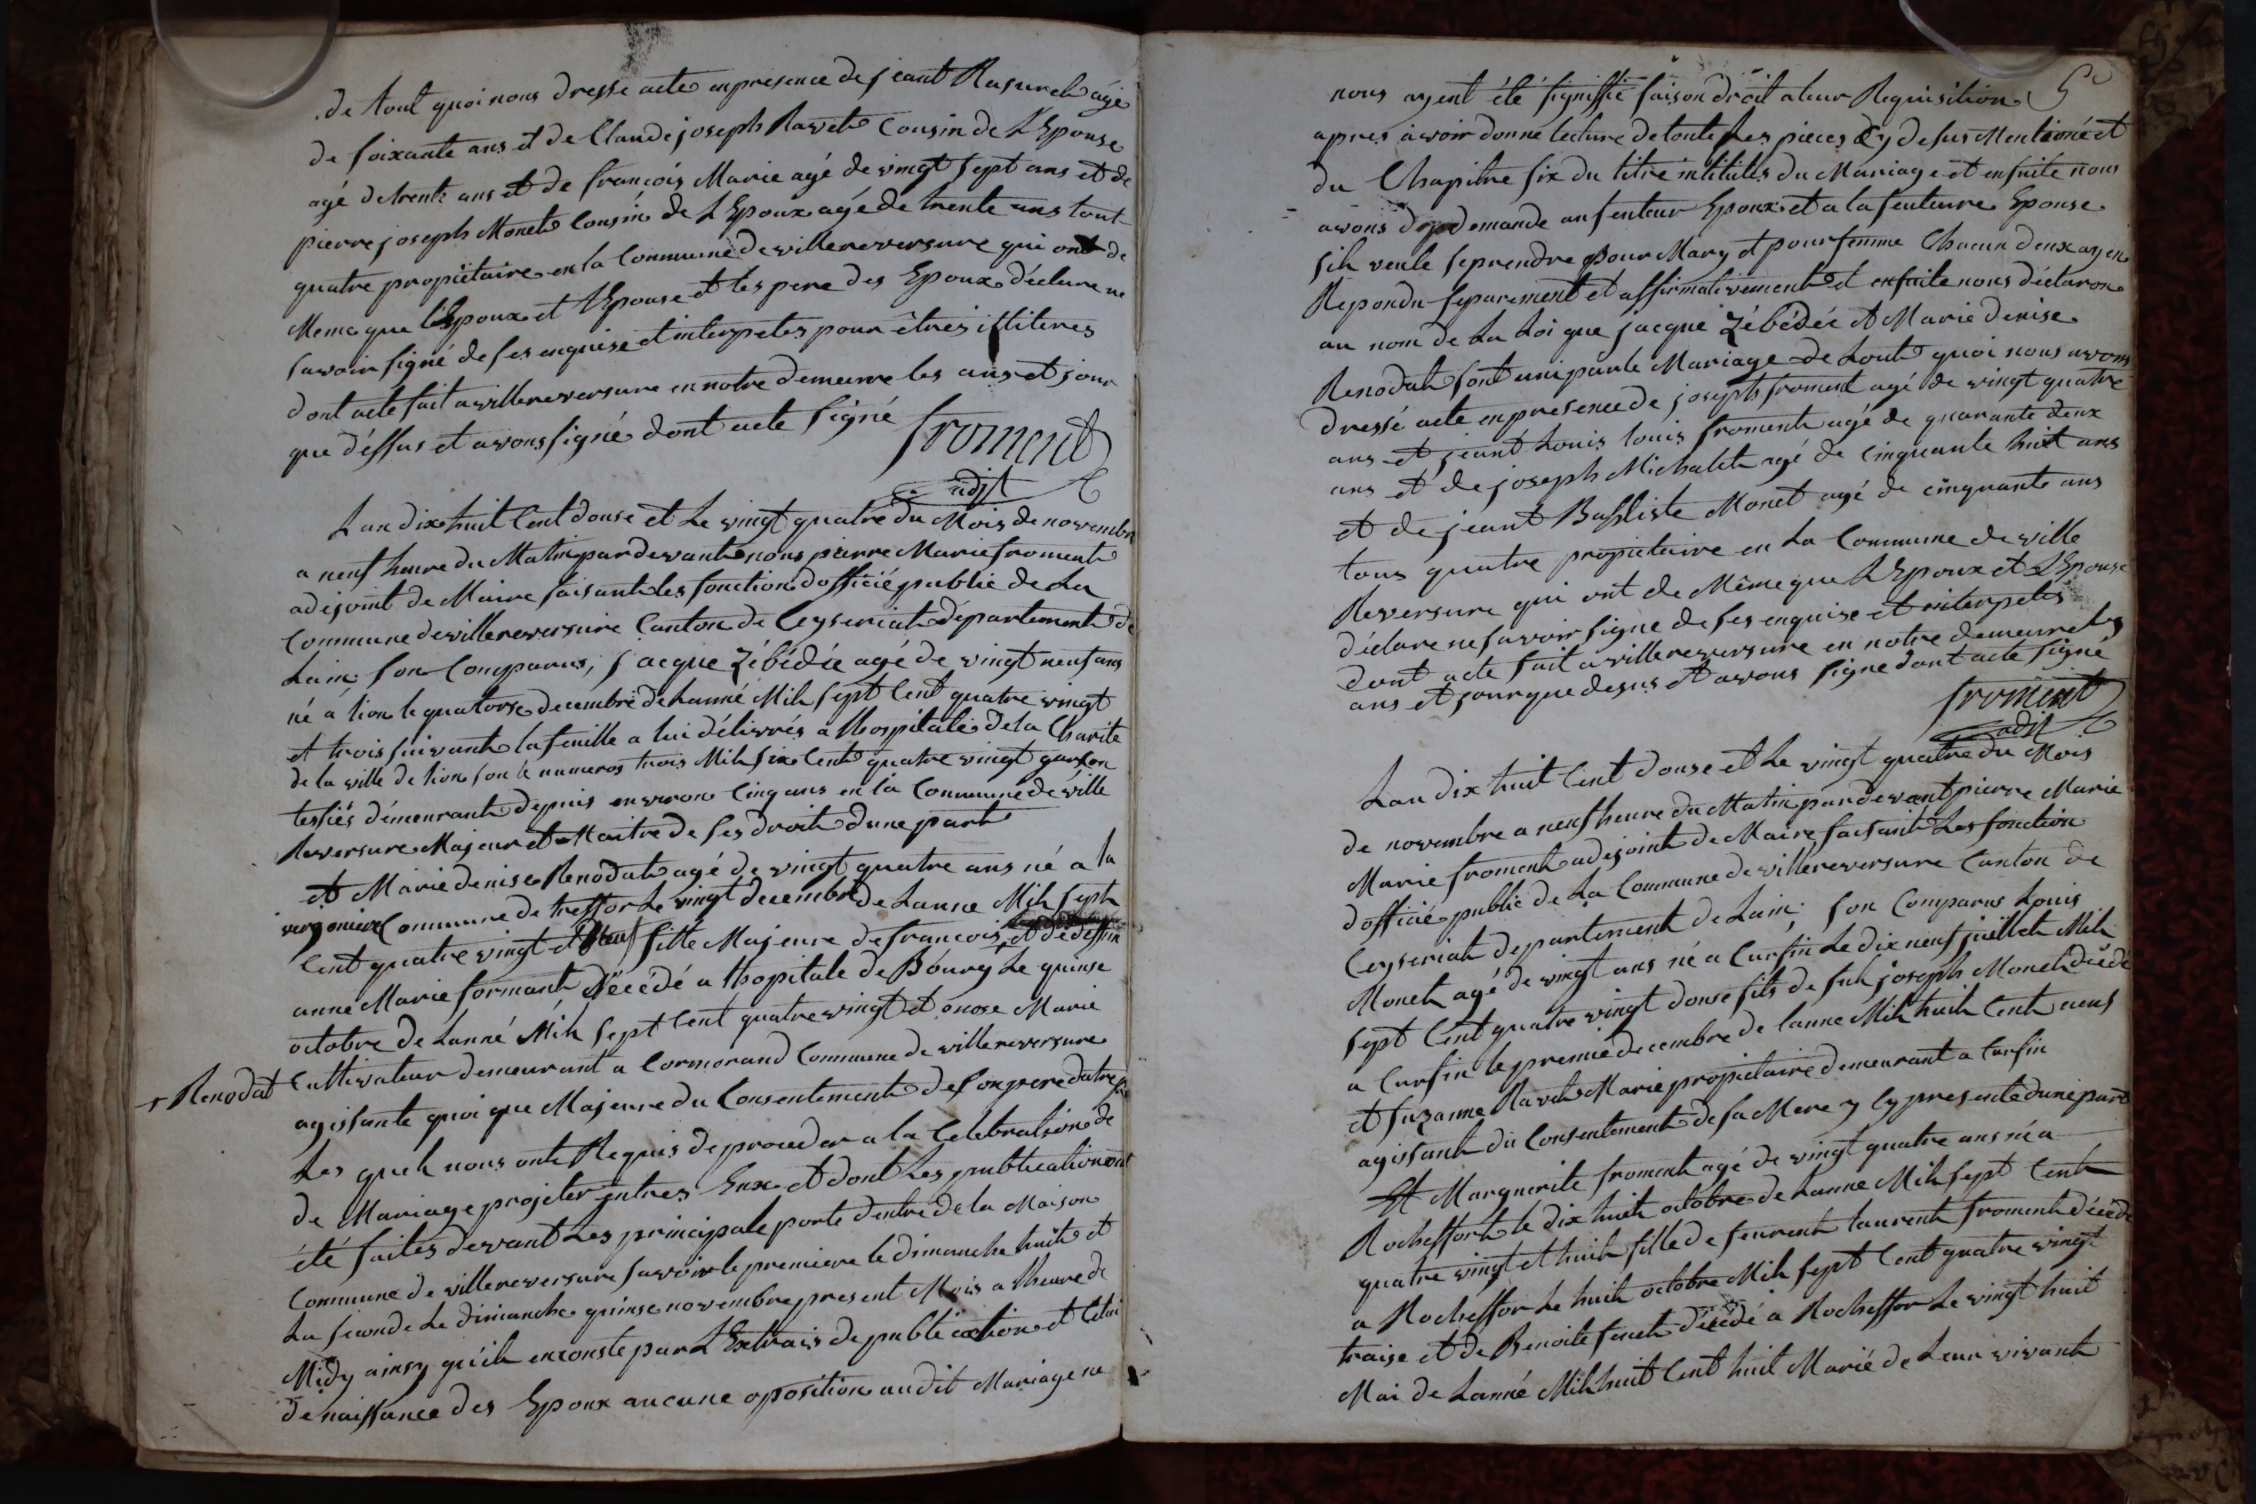 de tout quoi nous dresse acte en presence de jeant Rasurel agé
de soixante ans et de Claude joseph Ravet Cousin de LEpouse
agé de trente ans et de françois Marie agé de vingt sept ans et de
pierre joseph Monet Cousin de LEpoux agé de trente ans tout
quatre propiétaire en la Commune de villereversure qui ont de
Meme que LEpoux et LEpouse et les pere des Epoux déclare ne
savoir signé de ses enquise et interpetes pour êtres illiteres
dont acte fait a villereversure en notre demeure les ans et jour
que déssus et avons signé dont acte signé froment
adjt
Lan dix huit Cent douse et Le vingt quatre du Mois de novembre
a neuf heure du Matin par devant nous pierre Marie froment
adejoint de Maire faisant les fonction dofficié public de La
Commune de villereversure Canton de Ceyseriat département de
Lain son Comparus, jacque Zébédée agé de vingt neuf ans
né á lion le quatorse decembre de Lanné Mil sept Cent quatre vingt
et trois suivant la feuille a lui délivrés a Lhospitale de la Charite
de la ville de lion son le numeros trois Mil six Cent quatre vingt garson
tessiés démeurant depuis environ Cinq ans en la Commune de ville
Reversure Majeur et Maitre de ses droit dune part
et Marie denise Renodat agé de vingt quatre ans né a la
Commune de treffor Le vingt decembre de Lanne Mil sept
Cent quatre vingt et fille Majeure de francois et de deffun
anne Marie formant décédé a lhopitale de Bourg Le quinse
octobre de Lanné Mil sept Cent quatre vingt et onose Marie
+ Renodat Cultivateur demeurant a Cormorand Commune de villereversure
agissante quoi que Majeure du Consentement de son pere
Les quel nous ont Requis de proceder a la Celebration de
de Mariage projeter entres Eux et dont Les publication ont
été faites devant Les principale porte dentre de la Maison
Commune de villereversure savoir le premiere le dimanche huit et
La seconde Le dimanche quinse novembre present Mois a lheure de
Midy ainsy quil en conste par LExtrais de publication et Celui
de naissance des Epoux aucune oposition audit Mariage ne
nous ayent été signiffié faison droit a leur Requisition
apres avoir donné lecture de toute Les pieces Cy desus Mentioné et
du Chapitre six du titre intitulés du Mariage et ensuite nous
avons demande au feuteur Epoux et a la feuteure Epouse
sil veule se prendre pour Mary et pour femme Chacun deux ayen
Repondu separement et affirmativement et ensuite nous déclaron
au nom de La Loi que jacque Zébédée et Marie denise
Renodat sont uni par le Mariage de tout quoi nous avons
dressé acte en presence de joseph froment agé de vingt quatre
ans et jeant Louis louis froment agé de quarante deux
ans et de joseph Michalet agé de Cinquante huit ans
et de jeant Babtiste Monet agé de cinquante ans
tous quatre propietaire en La Commune de ville
Reversure qui ont de Même que LEpoux et LEpouse
déclare ne savoir signe de ses enquise et interpetes
dont acte fait a villereversure en notre demeure Les
ans et jour que desus et avons signe dont acte signé
froment
adjt
Lan dix huit Cent douse et Le vingt quatre du Mois
de novembre a neuf heure du Matin par devant pierre Marie
Marie froment adejoint de Maire faisant Les fonction
dofficié public de La Commune de villereversure Canton de
Ceyseriat departement de Lain; son Comparus Louis
Monet agé de vingt ans né a Cursin Le dix neuf juillet Mil
sept Cent quatre vingt douse fils de fut joseph Monet décédé
a Cursin le premie decembre de lanne Mil huit Cent neuf
et suzanne Ravet Marie propietaire demeurant a Cursin
agissant du Consentement de sa Mere y Cy presente dune part
Et Marguerite froment agé de vingt quatre ans né a
Rocheffort le dix huit octobre de Lanne Mil sept Cent
quatre vingt et huit fille de laurent froment décédé
a Rocheffor Le huit octobre Mil sept Cent quatre vingt
traise et de Benoite décédé a Rocheffor Le vingt huit
Mai de Lanné Mil huit Cent huit Marié de Leur vivant